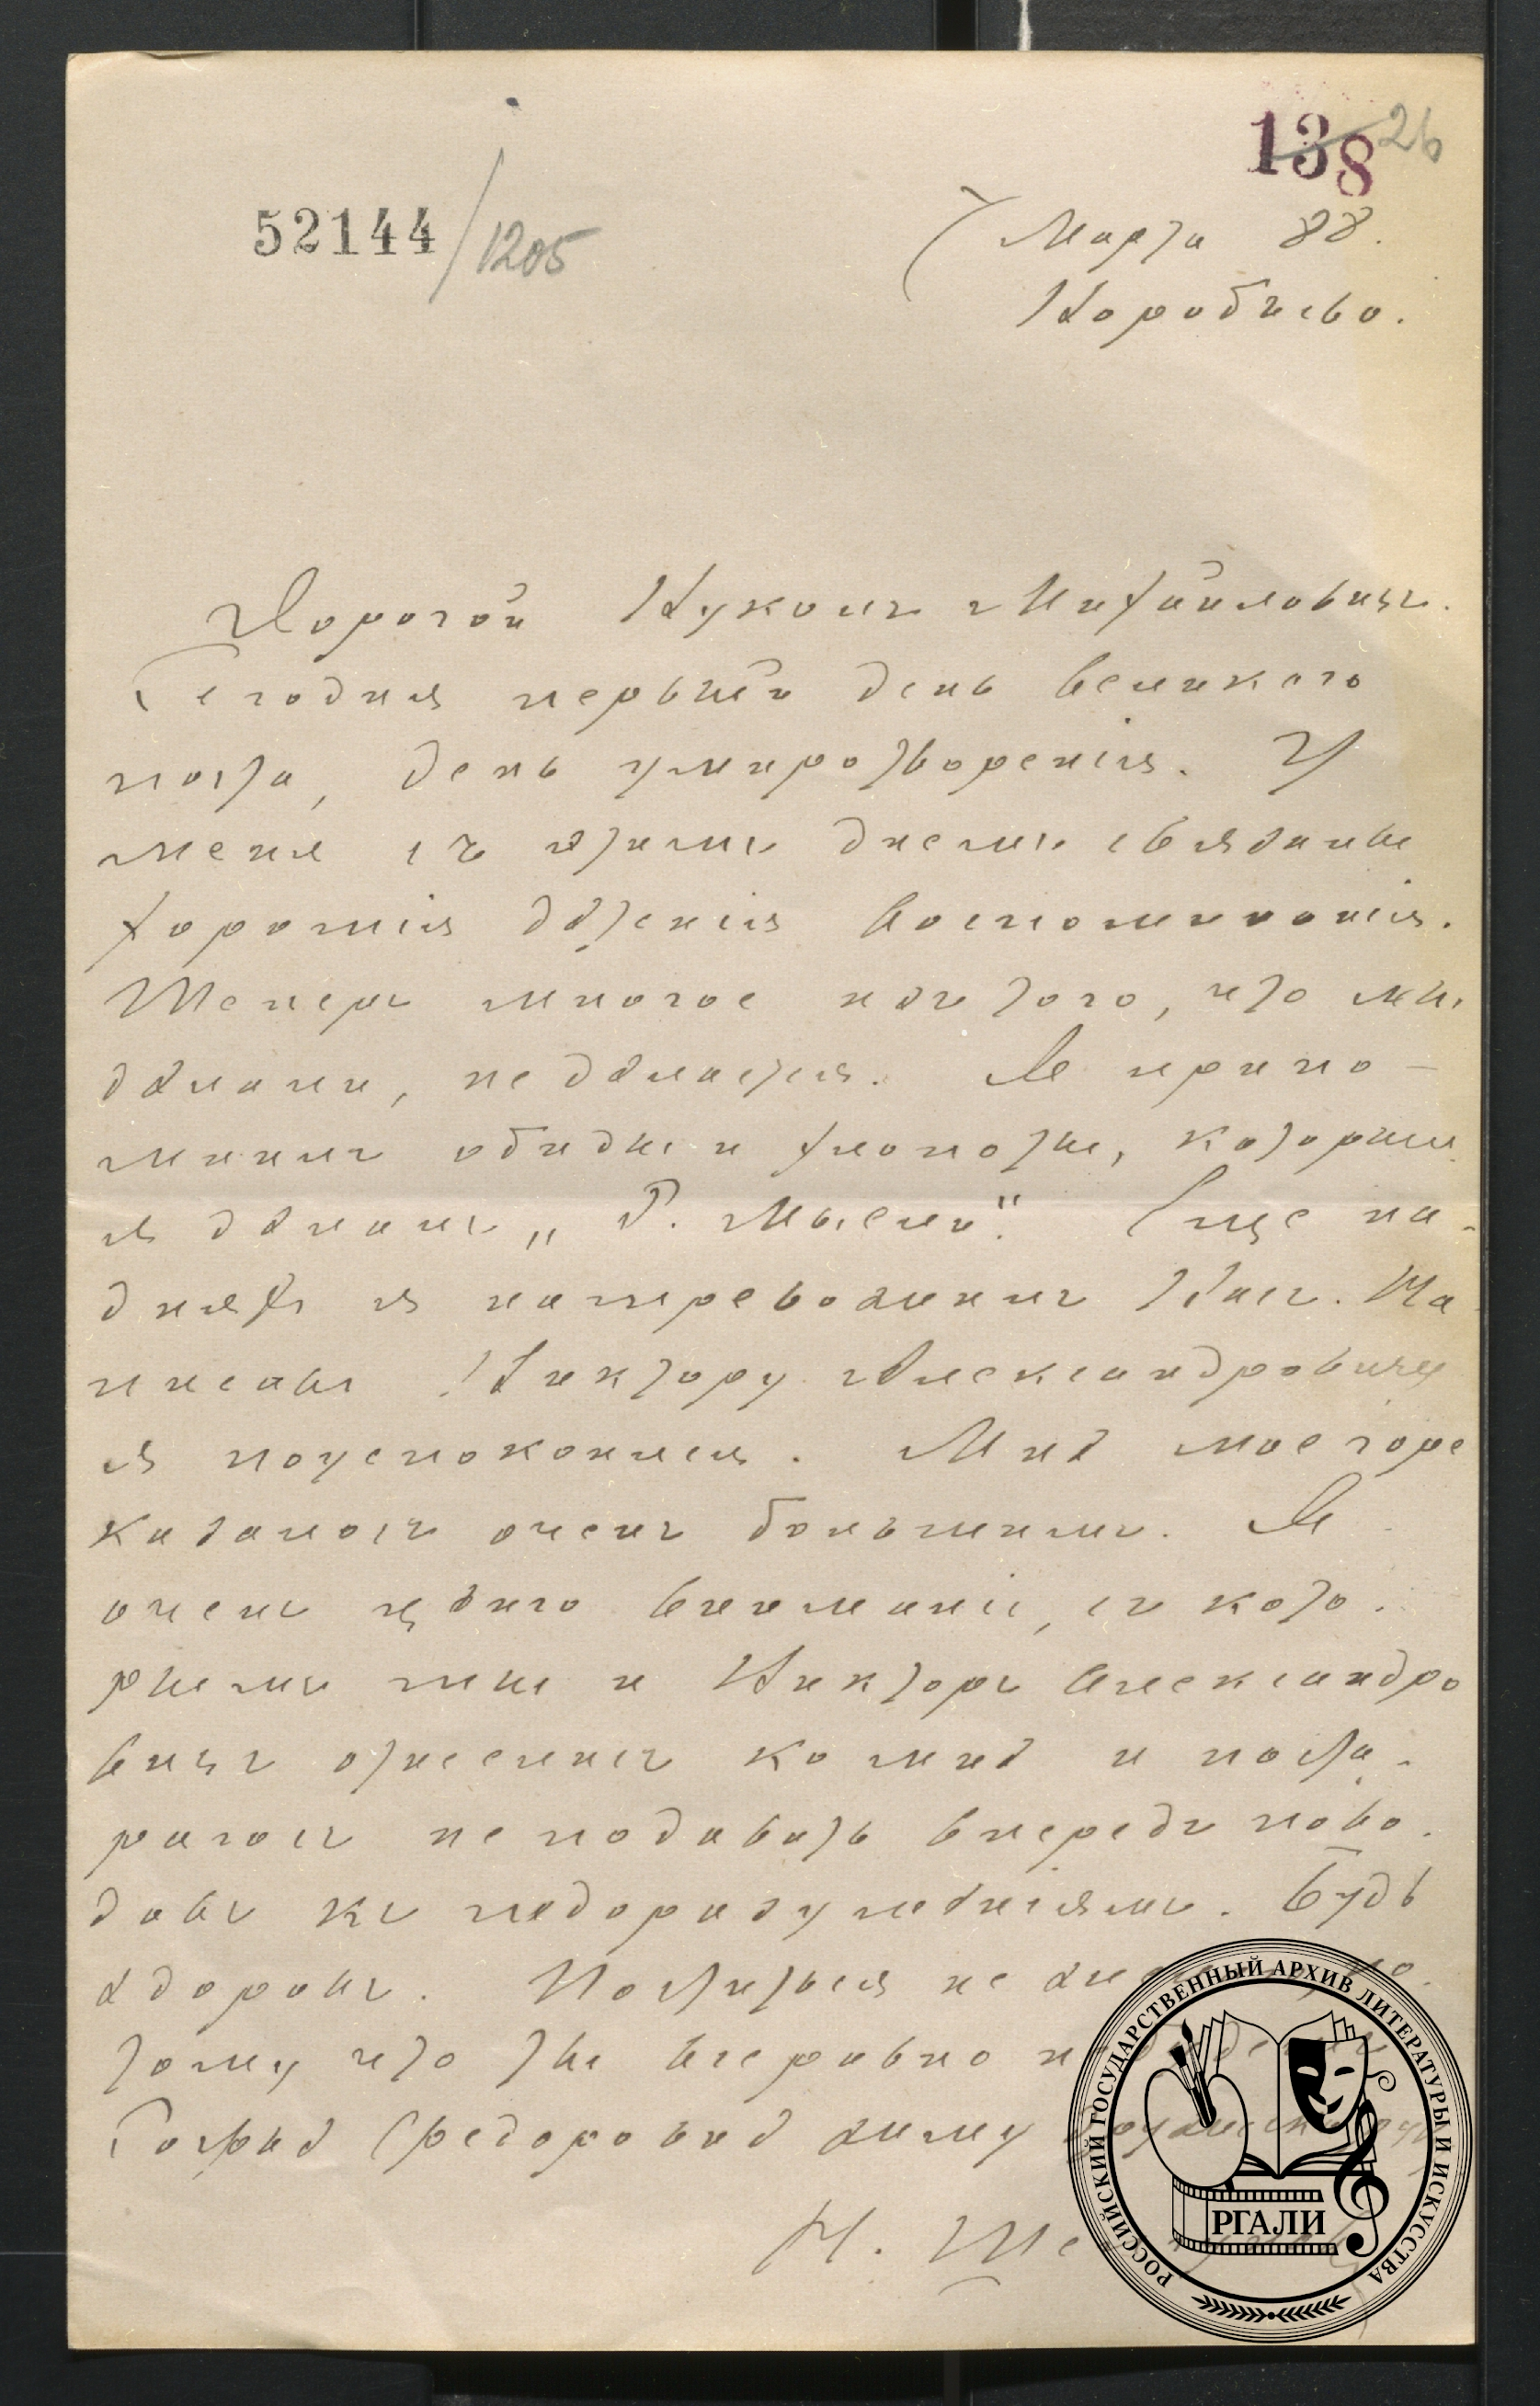 138 26
52144/1205
7 Марта 88.
Воробьево.
Дорогой Вуколъ Михайловичъ.
Сегодня первый день великого
поста, день умиротворенія. У
меня съ этимъ днемъ связаны
хорошія дѣтскія воспоминанія.
Теперь многое изъ того, что мы
дѣлали, не дѣлается. Я припо-
минаю обиды и хлопоты, которыя
я дѣлалъ „Р. Мысли". Еще на-
дняхъ я натревожилъ Васъ. На
писавъ Виктору Александровичу
я поуспокоился. Мнѣ мое горе
казалось очень большимъ. Я
очень цѣню вниманіе, съ кото-
рымъ ты и Викторъ Александро
вичъ отнеслись ко мнѣ и поста-
раюсь не подавать впередъ пово-
довъ къ недоразумѣніямъ. Будь
здоровъ. Поститься не
тому что ты все равно не
Софьѣ Федоровнѣ
Н.
РОССИЙСКИЙ ГОСУДАРСТВЕННЫЙ АРХИВ ЛИТЕРАТУРЫ И ИСКУССТВА
РГАЛИ